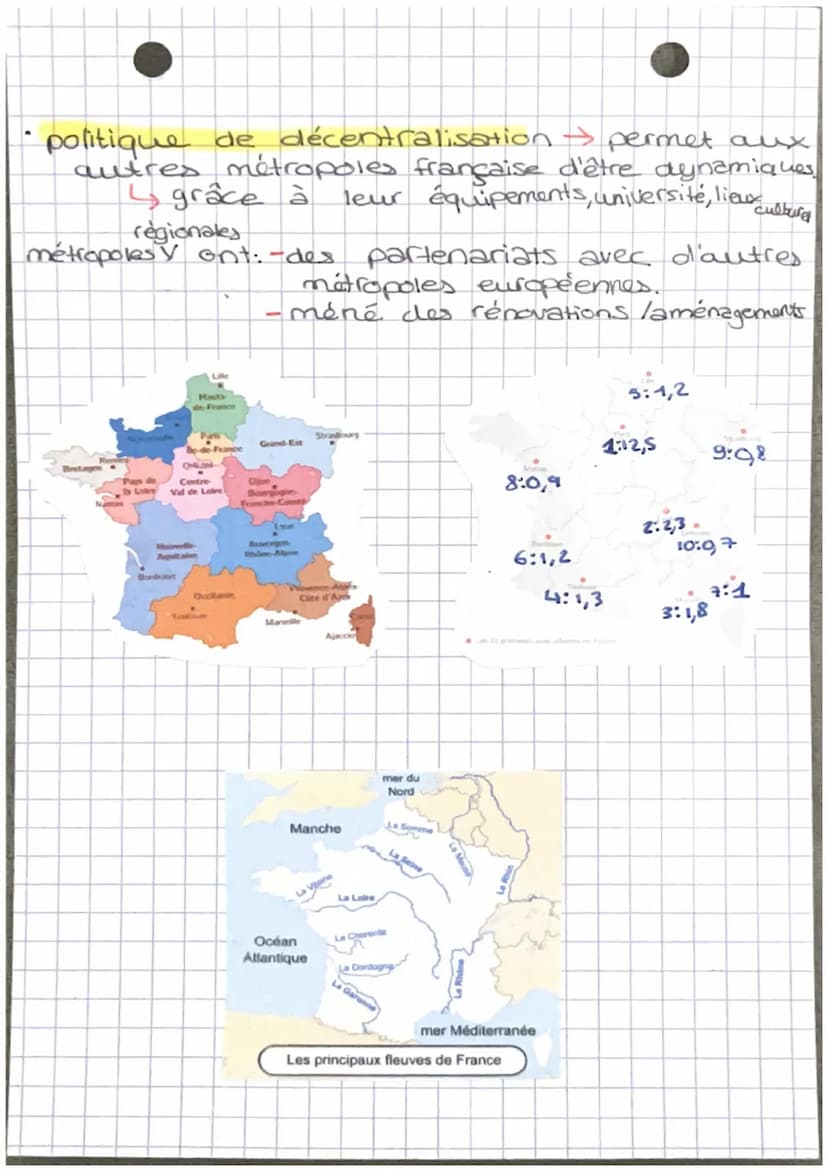 · politique de décentralisation → permet aux
autres métropoles française d'être dynamiques.
↳ grâce à leur équipements, université, lieux
culturel
régionales
métropoles V ont: - des partenariats avec d'autres
métropoles européennes.
- méné des rénovations /aménagements
Lille
Hauts-
de-France
Normandie
Paris
Île-de-France
Grand-Est
Strasbourg
Bretagne
Rennes
Orléans
Pays de
la Loire
Centre-
Val de Loire
Dijon
Bourgogne-
Franche-Comté
Nantes
Lyon
Nouvelle-
Aquitaine
Auvergne-
Rhône-Alpes
Bordeaux
Occitanie
Provence-Alpes-
Côte d'Azur
Toulouse
Marseille
Corse
Ajaccio
5:1,2
1:12,5
9:0,8
8:0,9
2:2,3
10:0,7
6:1,2
4:1,3
7:1
3:1,8
mer du
Nord
Manche
La Somme
La Seine
La Meuse
Le Rhin
La Vilaine
La Loire
La Charente
Océan
Atlantique
La Dordogne
La Garonne
Le Rhône
mer Méditerranée
Les principaux fleuves de France